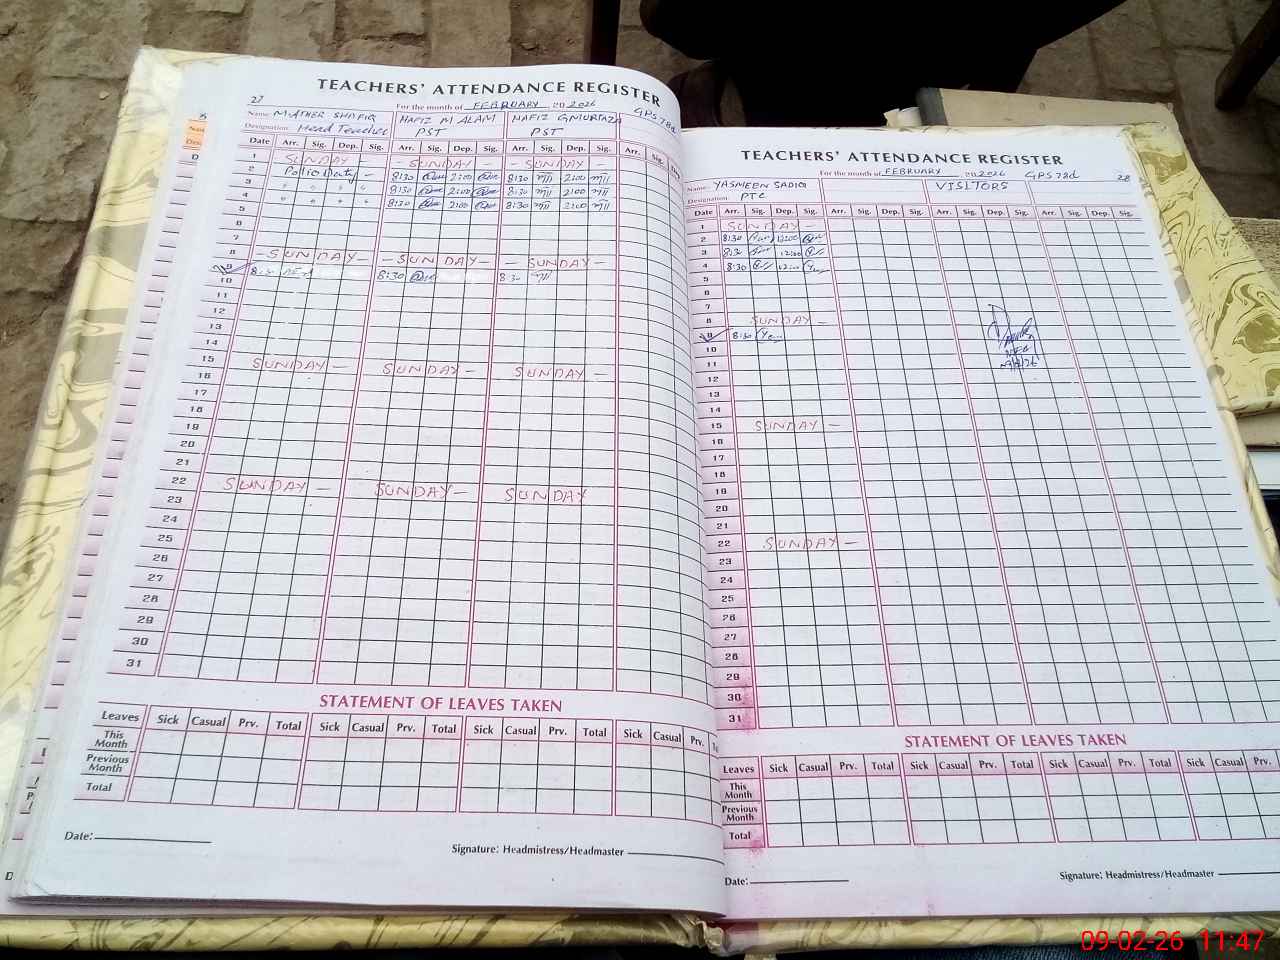 TEACHERS' ATTENDANCE REGISTER
27
For the month of FEBRUARY 20 2026
GPS 78d
Name: MATHER SHAFIQ HAFIZ M ALAM HAFIZ G MURTAZA
Designation: Head Teacher PST PST
Date Arr. Sig. Dep. Sig. Arr. Sig. Dep. Sig. Arr. Sig. Dep. Sig. Arr. Sig.
1 SUNDAY - - SUNDAY - - SUNDAY -
2 Polio Duty - 8:30 2:00 8:30 2:00
3 " " " " 8:30 2:00 8:30 2:00
4 " " " " 8:30 2:00 8:30 2:00
5
6
7
8 - SUNDAY - - SUNDAY - - SUNDAY -
9 8:30 8:30 8:30
10
11
12
13
14
15 SUNDAY - SUNDAY - SUNDAY -
16
17
18
19
20
21
22 SUNDAY - SUNDAY - SUNDAY
23
24
25
26
27
28
29
30
31
STATEMENT OF LEAVES TAKEN
Leaves Sick Casual Prv. Total Sick Casual Prv. Total Sick Casual Prv. Total Sick Casual Prv.
This Month
Previous Month
Total
Date:
Signature: Headmistress/Headmaster
TEACHERS' ATTENDANCE REGISTER
For the month of FEBRUARY 20 2026 GPS 78d 28
Name: YASMEEN SADIQ VISITORS
Designation: PTC
Date Arr. Sig. Dep. Sig. Arr. Sig. Dep. Sig. Arr. Sig. Dep. Sig. Arr. Sig. Dep. Sig.
1 SUNDAY -
2 8:30 12:00
3 8:30 12:00
4 8:30 12:00
5
6
7
8 SUNDAY -
9 8:30
10
11
12
13
14
15 SUNDAY -
16
17
18
19
20
21
22 SUNDAY -
23
24
25
26
27
28
29
30
31
STATEMENT OF LEAVES TAKEN
Leaves Sick Casual Prv. Total Sick Casual Prv. Total Sick Casual Prv. Total Sick Casual Prv.
This Month
Previous Month
Total
Date:
Signature: Headmistress/Headmaster
09-02-26 11:47